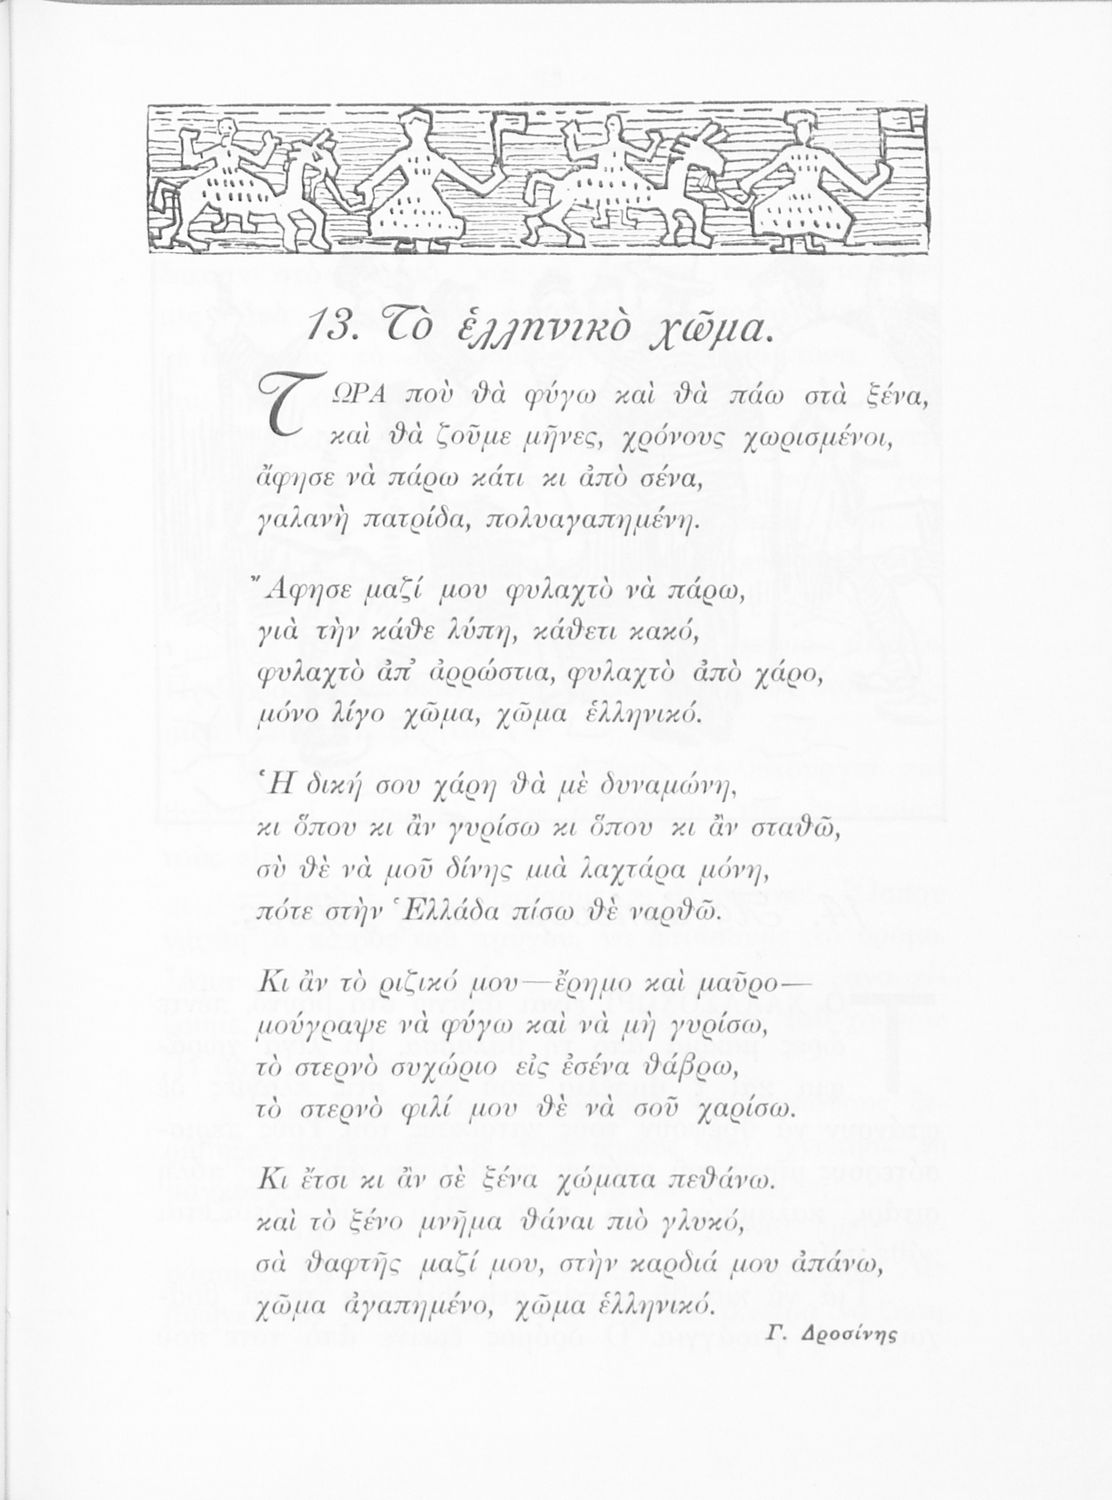 13. Τὸ ἑλληνικὸ χῶμα.
ΤΩΡΑ ποὺ θὰ φύγω καὶ θὰ πάω στὰ ξένα,
καὶ θὰ ζοῦμε μῆνες, χρόνους χωρισμένοι,
ἄφησε νὰ πάρω κάτι κι ἀπὸ σένα,
γαλανὴ πατρίδα, πολυαγαπημένη.
Ἄφησε μαζί μου φυλαχτὸ νὰ πάρω,
γιὰ τὴν κάθε λύπη, κάθετι κακό,
φυλαχτὸ ἀπ᾿ ἀρρώστια, φυλαχτὸ ἀπὸ χάρο,
μόνο λίγο χῶμα, χῶμα ἑλληνικό.
Ἡ δική σου χάρη θὰ μὲ δυναμώνη,
κι ὅπου κι ἂν γυρίσω κι ὅπου κι ἂν σταθῶ,
σὺ θὲ νὰ μοῦ δίνης μιὰ λαχτάρα μόνη,
πότε στὴν Ἑλλάδα πίσω θὲ ναρθῶ.
Κι ἂν τὸ ριζικό μου—ἔρημο καὶ μαῦρο—
μούγραψε νὰ φύγω καὶ νὰ μὴ γυρίσω,
τὸ στερνὸ συχώριο εἰς ἐσένα θάβρω,
τὸ στερνὸ φιλί μου θὲ νὰ σοῦ χαρίσω.
Κι ἔτσι κι ἂν σὲ ξένα χώματα πεθάνω.
καὶ τὸ ξένο μνῆμα θάναι πιὸ γλυκό,
σὰ θαφτῆς μαζί μου, στὴν καρδιά μου ἀπάνω,
χῶμα ἀγαπημένο, χῶμα ἑλληνικό.
Γ. Δροσίνης